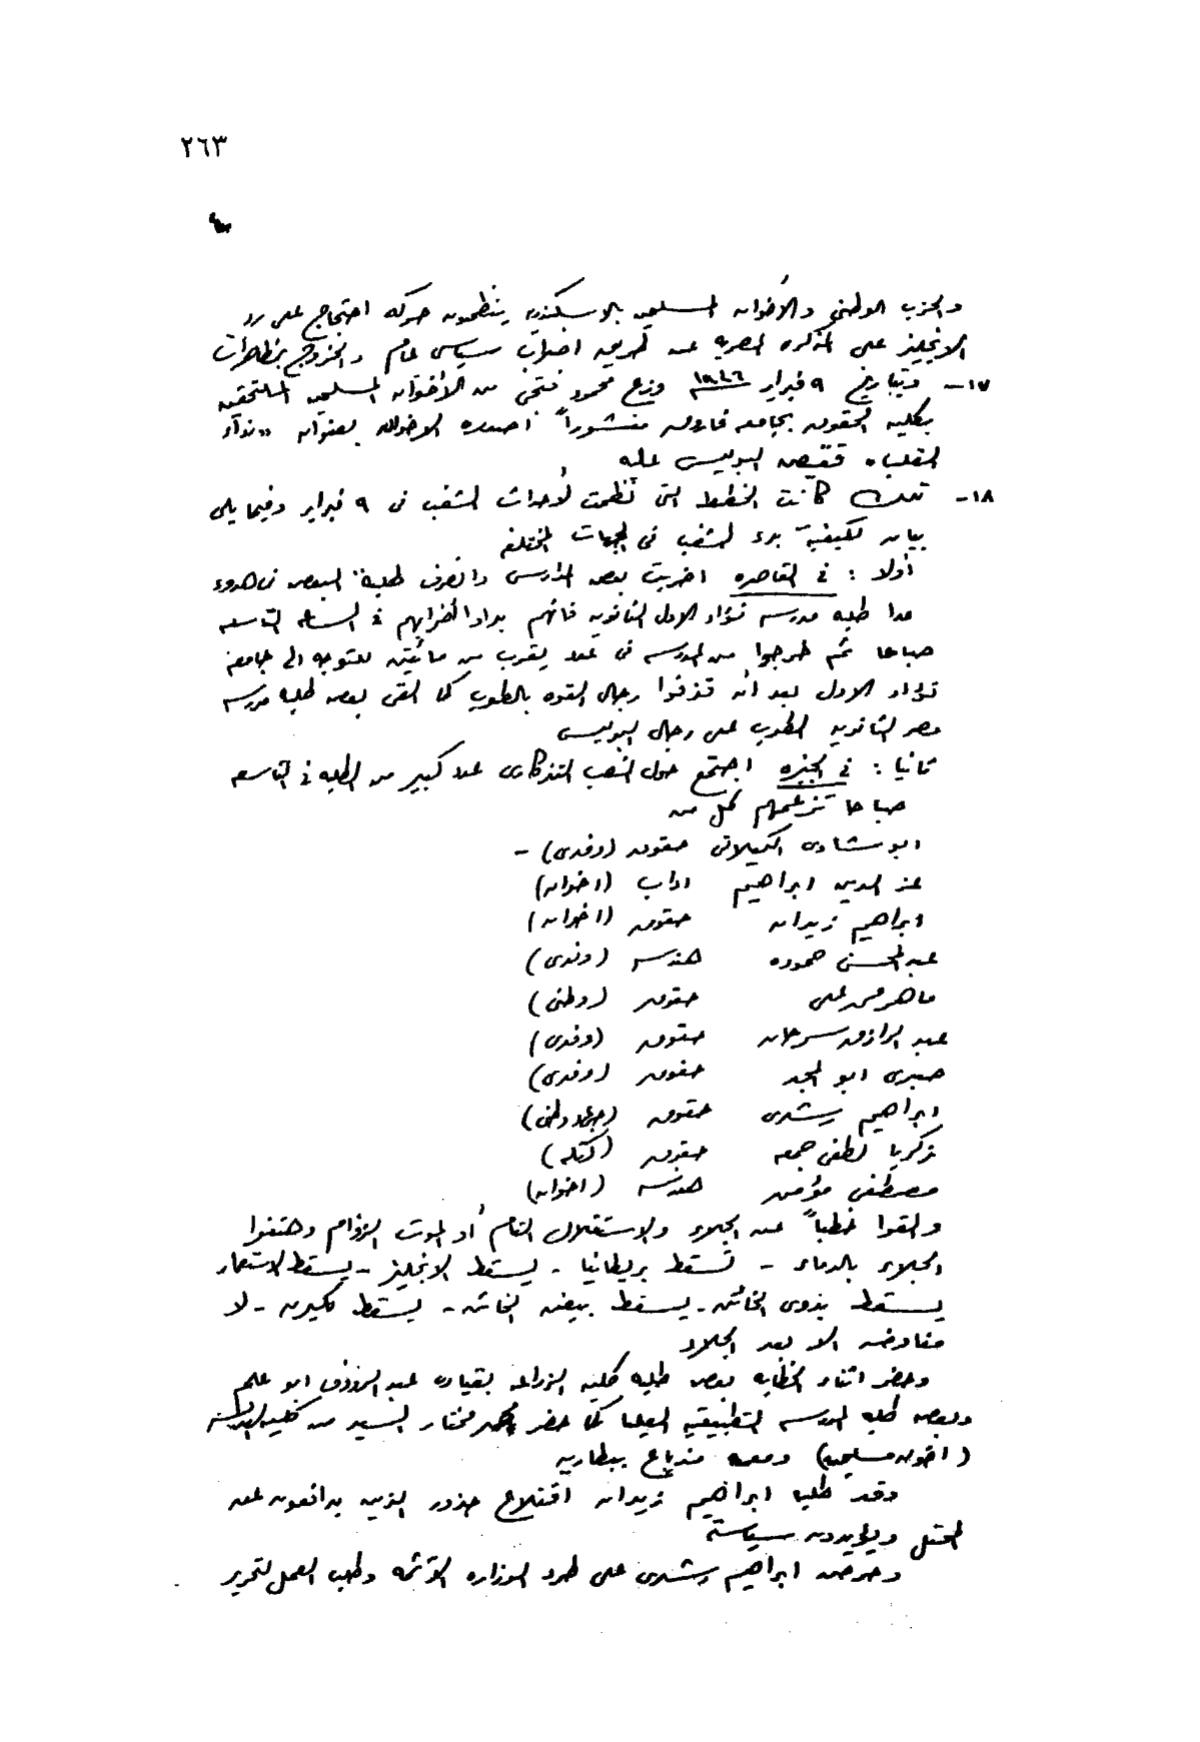 ٢٦٣
والحزب الوطنى والأخوان المسلمين بالاسكندريه ينظمون حركه احتجاج على رد
الانجليز على المذكره المصريه عن طريق اضراب سياسى عام والخروج بمظاهرات
١٧- وبتاريخ ٩ فبراير ١٩٤٦ وزع محمود فتحى من الأخوان المسلمين الملتحقين
بكليه الحقوق بجامعه فاروق منشوراً اصدره الاخوان بعنوان «نداء
الطلبه» فقبض البوليس عليه
١٨- تلك كانت الخطط التى نظمت لأحداث الشغب فى ٩ فبراير وفيما يلى
بيان لكيفية بدء الشغب فى الجهات المختلفه
أولا : فى القاهره اضربت بعض المدارس وانصرف طلبة البعض فى هدوء
عدا طلبه مدرسه فؤاد الاول الثانويه فانهم بدأوا اضرابهم فى الساعه التاسعه
صباحا ثم خرجوا من المدرسه فى عدد يقرب من مائتين للتوجه الى جامعه
فؤاد الاول بعد أن قذفوا رجال القوه بالطوب كما القى بعض طلبه مدرسه
مصر الثانويه الطوب على رجال البوليس
ثانيا : فى الجيزه اجتمع حول النصب التذكارى عدد كبير من الطلبه فى التاسعه
صباحا تزعمهم كل من
ابو شادى الكيلانى حقوق (وفدى) -
عز الدين ابراهيم اداب (اخوان)
ابراهيم زيدان حقوق (اخوان)
عبد المحسن حموده هندسه (وفدى)
ماهر محمد على حقوق (وطنى)
عبد الرازق سرحان حقوق (وفدى)
صبرى ابو المجد حقوق (وفدى)
ابراهيم رشدى حقوق (جهاد وطنى)
زكريا لطفى جمعه حقوق (كتله)
مصطفى مؤمن هندسه (اخوان)
والقوا خطباً عن الجلاء والاستقلال التام أو الموت الزؤام وهتفوا
الجلاء بالدماء - تسقط بريطانيا - يسقط الانجليز - يسقط الاستعمار
يسقط بدوى الخائن - يسقط بيفن الخائن - يسقط كليرن - لا
مفاوضه الا بعد الجلاء
وحضر اثناء الخطابه بعض طلبه كليه الزراعه بقياده عبد الرؤوف ابو علم
وبعض طلبه المدرسه التطبيقيه العليا كما حضر محمد مختار السيد من كليه الهندسه
(اخوان مسلمين) ومعه مذياع ببطاريه
وقد طلب ابراهيم زيدان اقتلاع جذور الذين يدافعون عن
المحتل ويؤيدون سياسته
وحرض ابراهيم رشدى على طرد الوزاره القائمه وطلب العمل لتحرير